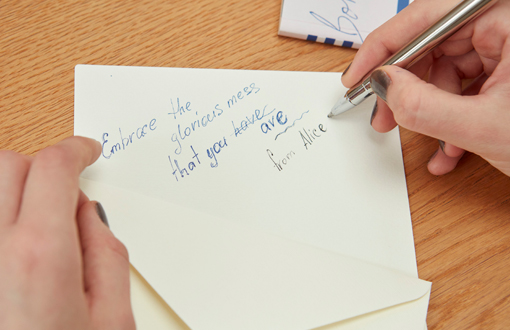 Embrace the
glorious mess
that you have are
from Alice